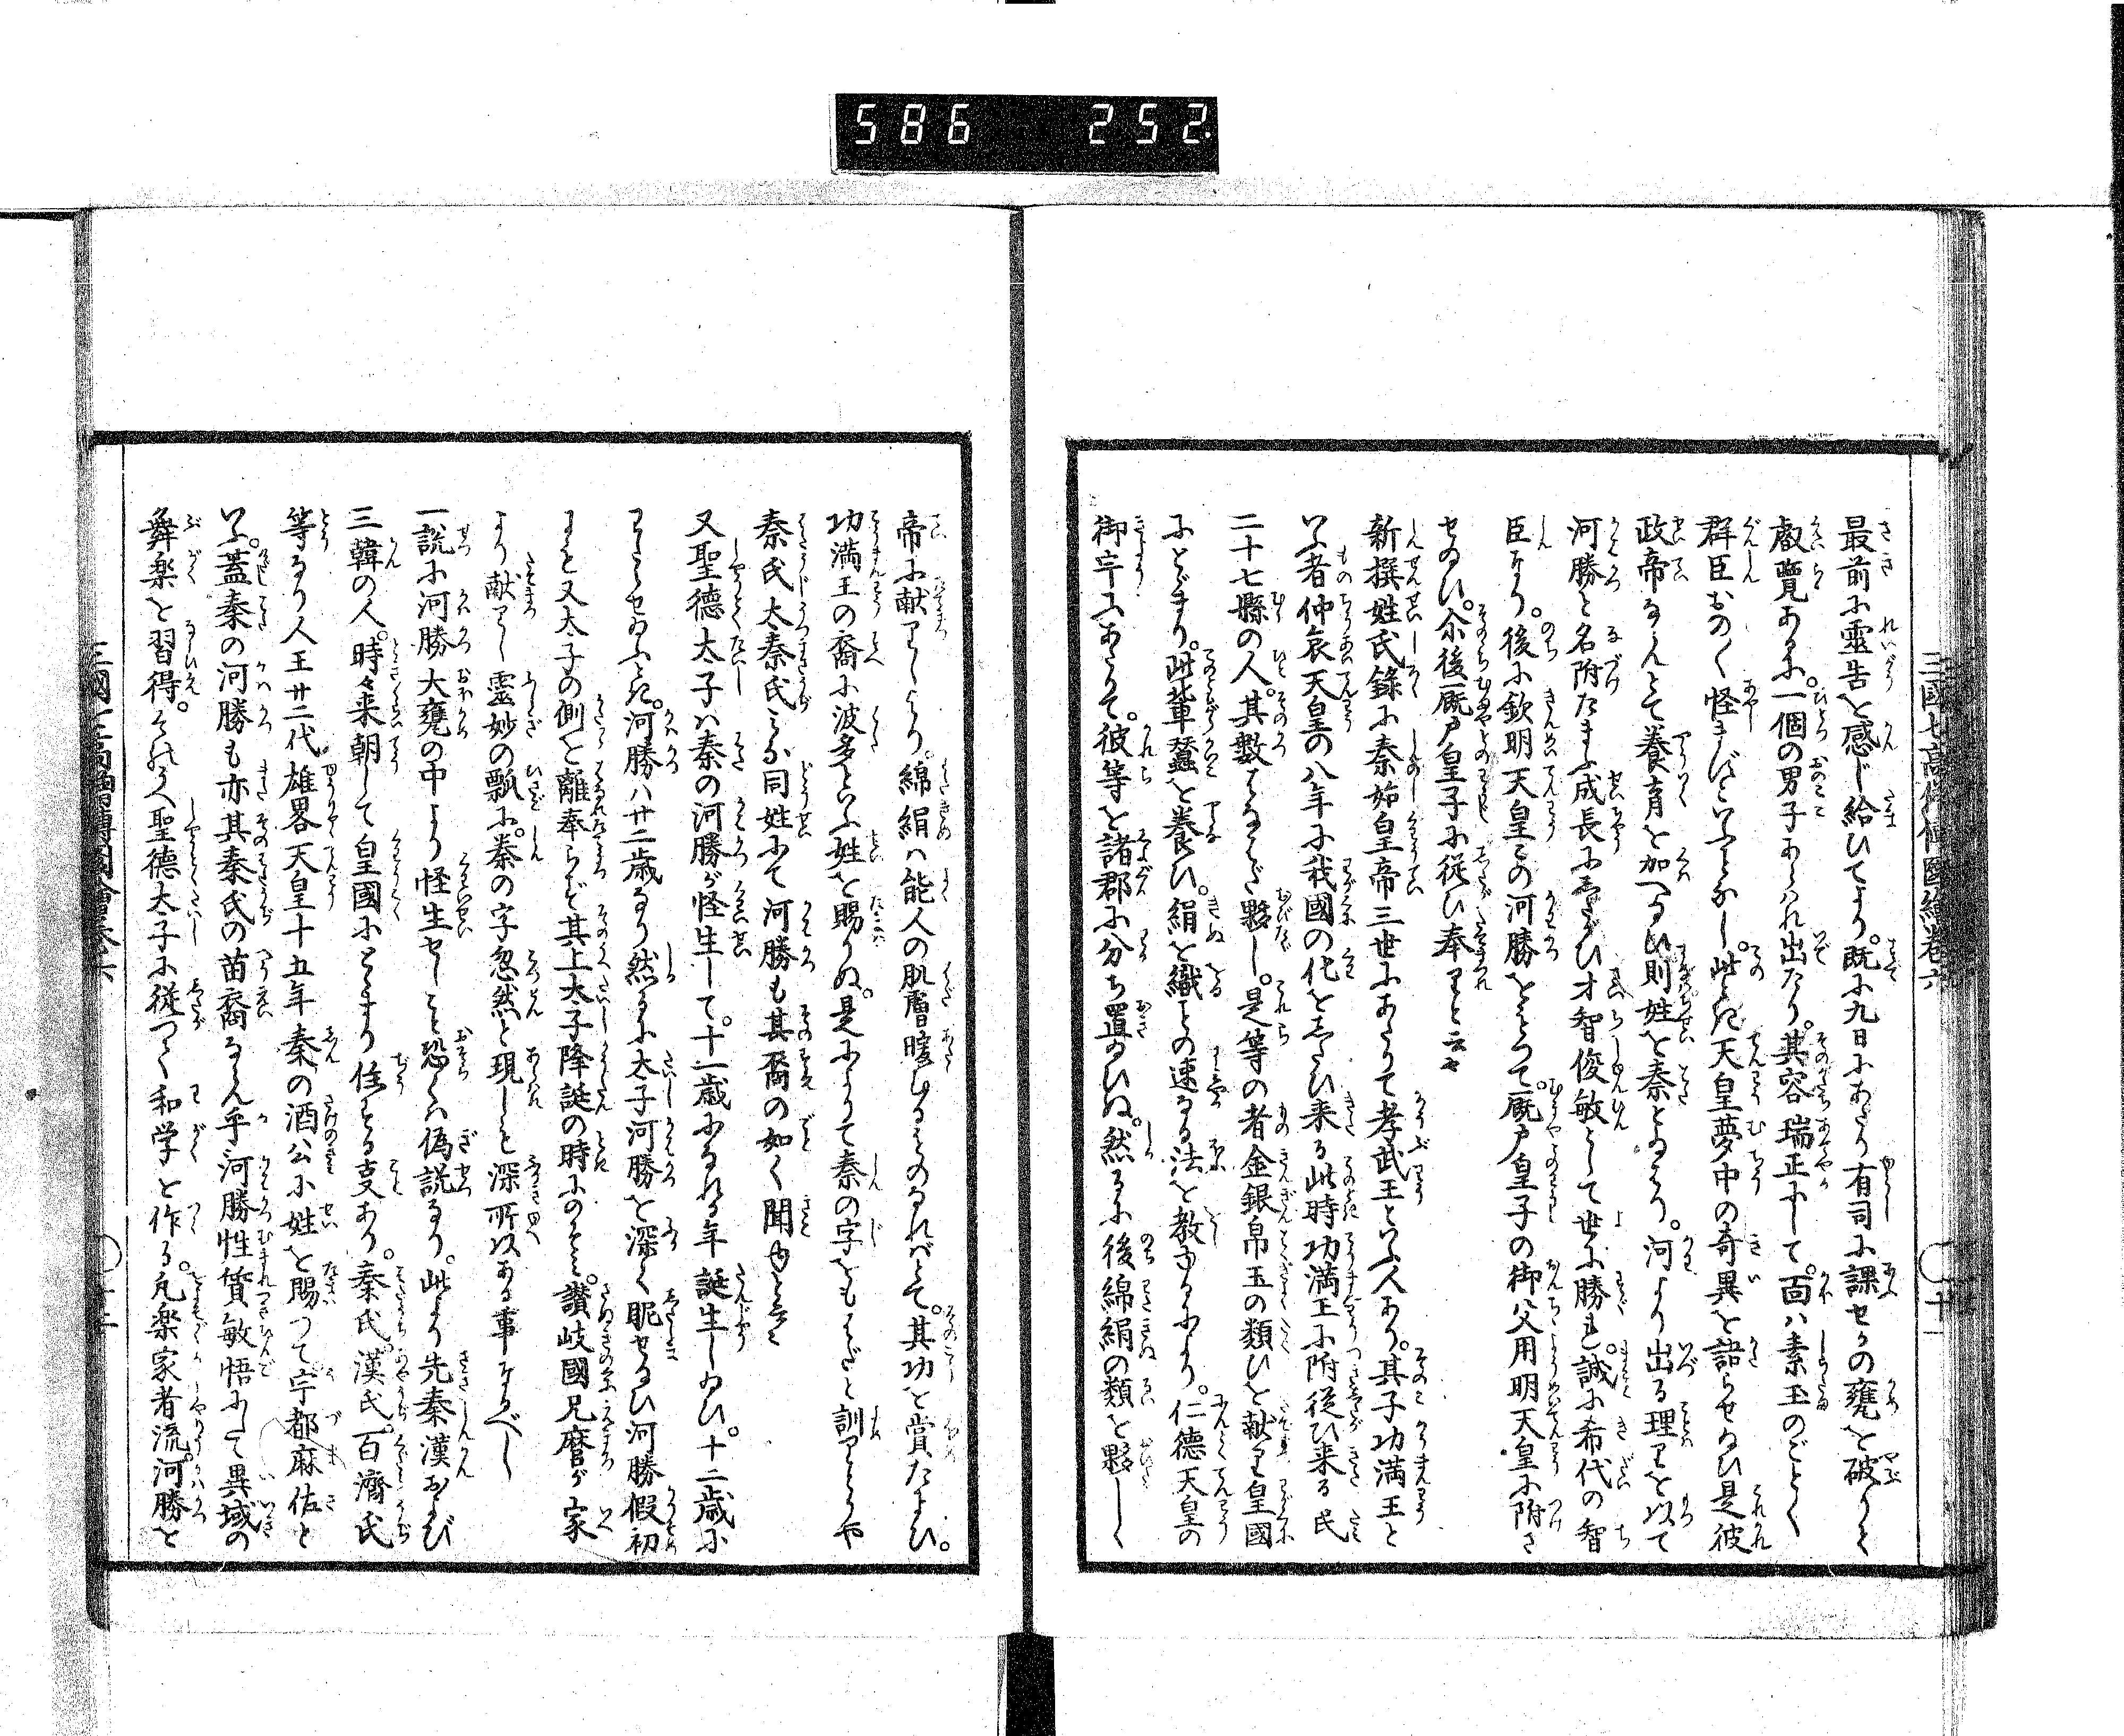 586 252
三國七高僧傳圖繪卷六
最前に靈告を感じ給ひてより。既に九日にあたり有司に課せかの甕を破らく
叡覽あるに。一個の男子あらはれ出たり。其容瑞正にして。面ハ素玉のごとく
群臣おの〱怪まざといふことなし。此とき天皇夢中の奇異を語らせ給ひ是彼
政帝なるらんとて養育を加へ給ひ則姓を秦と給ふ。河より出る理りを以て
河勝と名附たまふ成長にしたがひ才智俊敏として世に勝れ。誠に希代の智
臣なり。後に欽明天皇この河勝をもつて。厩戸皇子の御父用明天皇に附さ
せ給ひ。尒後厩戸皇子に従ひ奉りと云々
新撰姓氏錄に秦始皇帝三世にあたりて孝武王といふ人あり。其子功満王と
いふ者仲哀天皇の八年に我國の化をしたひ来る此時功満王に附従ひ来る民
二十七縣の人。其數はなはだ夥し。是等の者金銀帛玉の類ひを献り皇國
にとどまり。此輩蠶を養ひ。絹を織との速なる法を教ゆるにより。仁德天皇の
御宇にあたりて。彼等を諸郡に分ち置給ひぬ。然るに後綿絹の類を夥しく
帝に献りしより。綿絹ハ能人の肌膚暖むるものなればとて。其功を賞たまひ。
功満王の裔に波多といふ姓を賜りぬ。是によりて秦の字をもはだと訓りとかや
秦氏太秦氏みな同姓にて河勝も其裔の如く聞ゆといへ
又聖德太子ハ秦の河勝が怪生して。十一歳になれる年誕生し給ひ。十二歳に
わたらせ給ふとき。河勝ハ廿二歳なり然るに太子河勝を深く昵せ給ひ河勝假初
にも又太子の側を離奉らず其上太子降誕の時にのぞみ。讃岐國兄麿が家
より献りし靈妙の瓢に。秦の字忽然と現しも深所以ある事なるべし
一説に河勝大甕の中より怪生せしこと恐くハ偽説なり。此より先秦漢および
三韓の人。時々来朝して皇國にとどまり住する支あり。秦氏。漢氏。百濟氏
等なり人王廿二代。雄畧天皇十五年秦の酒公に姓を賜つて宇都麻佐と
いふ。蓋秦の河勝も亦其秦氏の苗裔ならん乎。河勝性質敏悟にして異域の
舞楽を習得。そのうへ聖德太子に従つく和学を作る。凡楽家者流。河勝を
三國七高僧傳圖會卷六